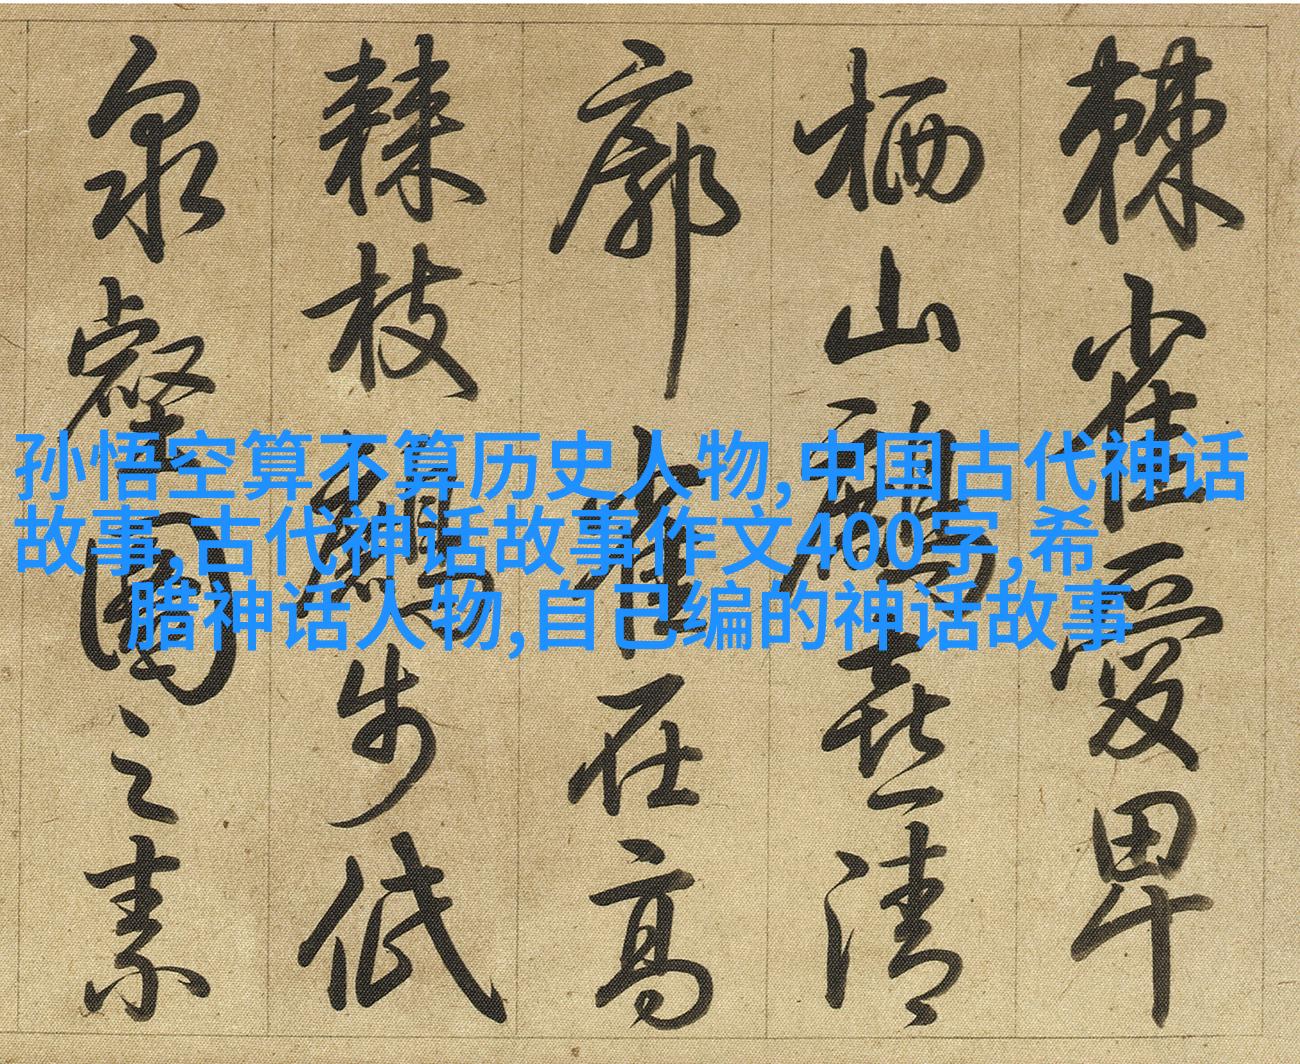 棘雀愛卑
栖山鶴喜清
廓雀在高
棘枝鶴步低
泉壑圖之素
孙悟空算不算历史人物,中国古代神话
故事,古代神话故事作文400字,希
腊神话人物,自己编的神话故事